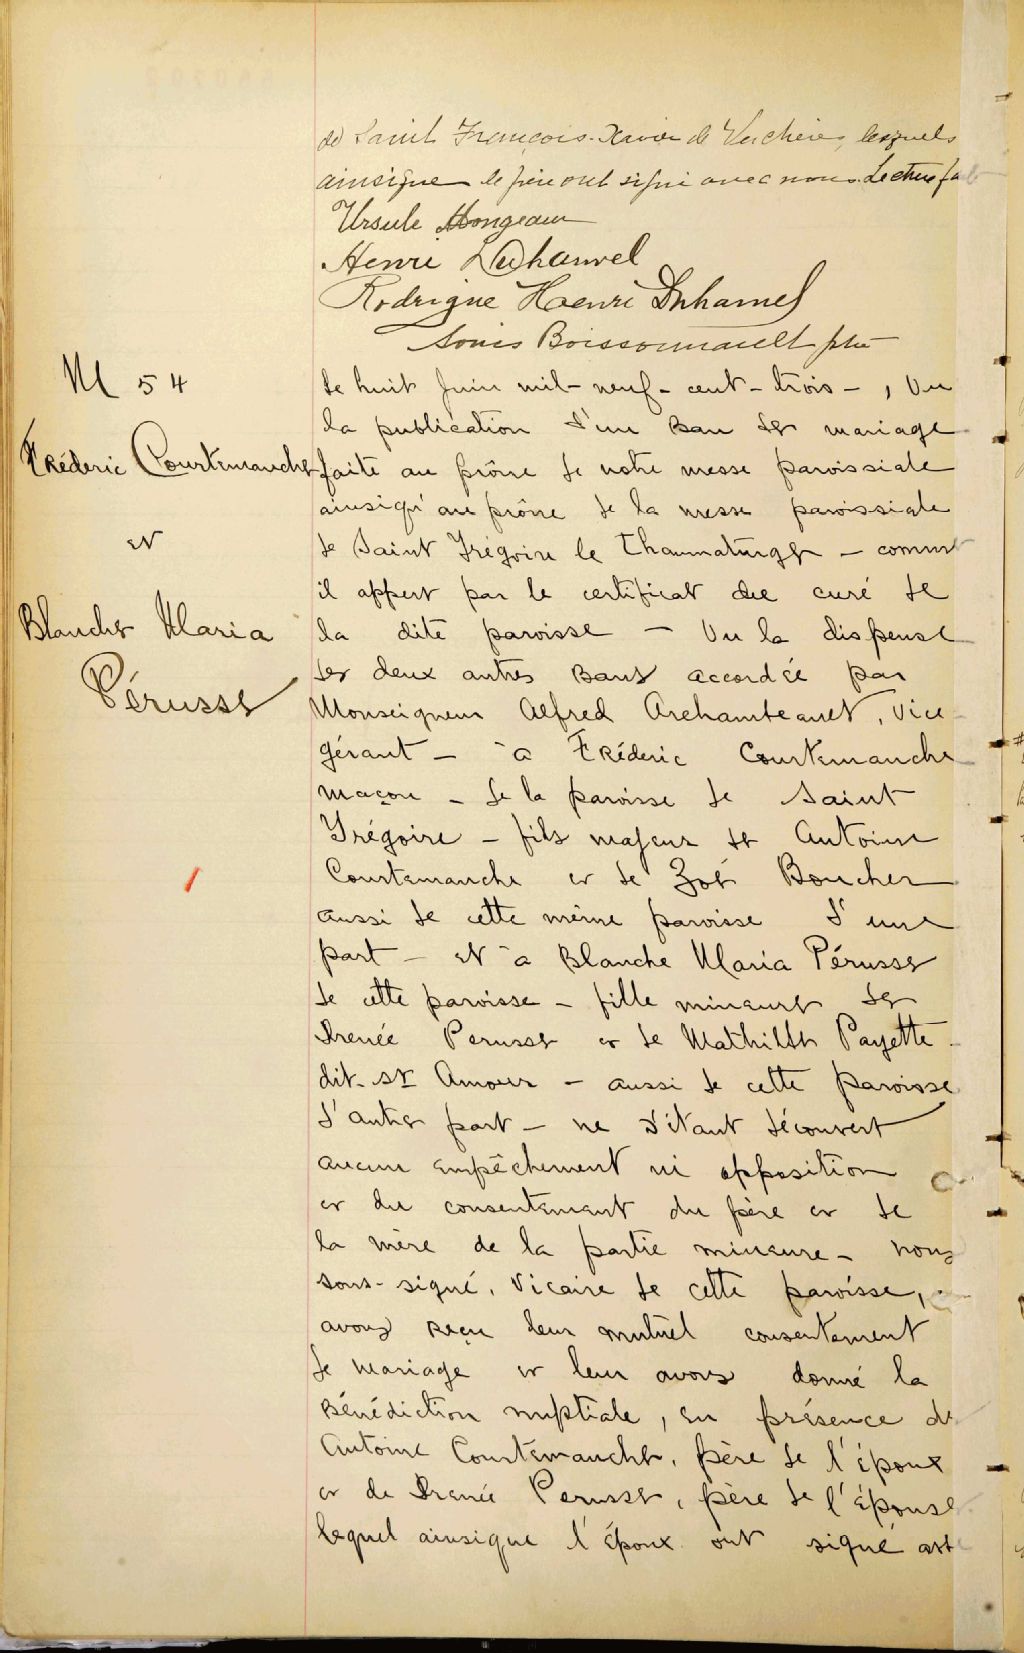 de Saint François-Xavier de Verchères, lesquels
ainsi que le père ont signé avec nous. Lecture fa
Ursule Mongeau
Henri Duhamel
Rodrigue Henri Duhamel
Louis Boissonnault ptre
M 54
Frédéric Courtemanche
et
Blanche Maria
Pérusse
Le huit Juin mil-neuf-cent-trois-, Vu
la publication d'un Ban de mariage
faite au prône de notre messe paroissiale
ainsiqu'au prône de la messe paroissiale
de Saint Grégoire le Thaumaturge - comme
il appert par le certificat du curé de
la dite paroisse - Vu la dispense
des deux autres bans accordée par
Monseigneur Alfred Archambeault, Vice
gérant - à Frédéric Courtemanche
maçon - de la paroisse de Saint
Grégoire - fils majeur de Antoine
Courtemanche et de Zoé Boucher
aussi de cette même paroisse d'une
part - et à Blanche Maria Pérusse
de cette paroisse - fille mineure de
Irenée Perusse et de Mathilde Payette
dit-St Amour - aussi de cette paroisse
d'autre part - ne s'étant découvert
aucun empêchement ni opposition
et du consentement du père et de
la mère de la partie mineure - nous
sous-signé, Vicaire de cette paroisse,
avons reçu leur mutuel consentement
de mariage et leur avons donné la
Bénédiction nuptiale, en présence de
Antoine Courtemanche, père de l'époux
et de Irenée Perusse, père de l'épouse
lequel ainsique l'époux ont signé